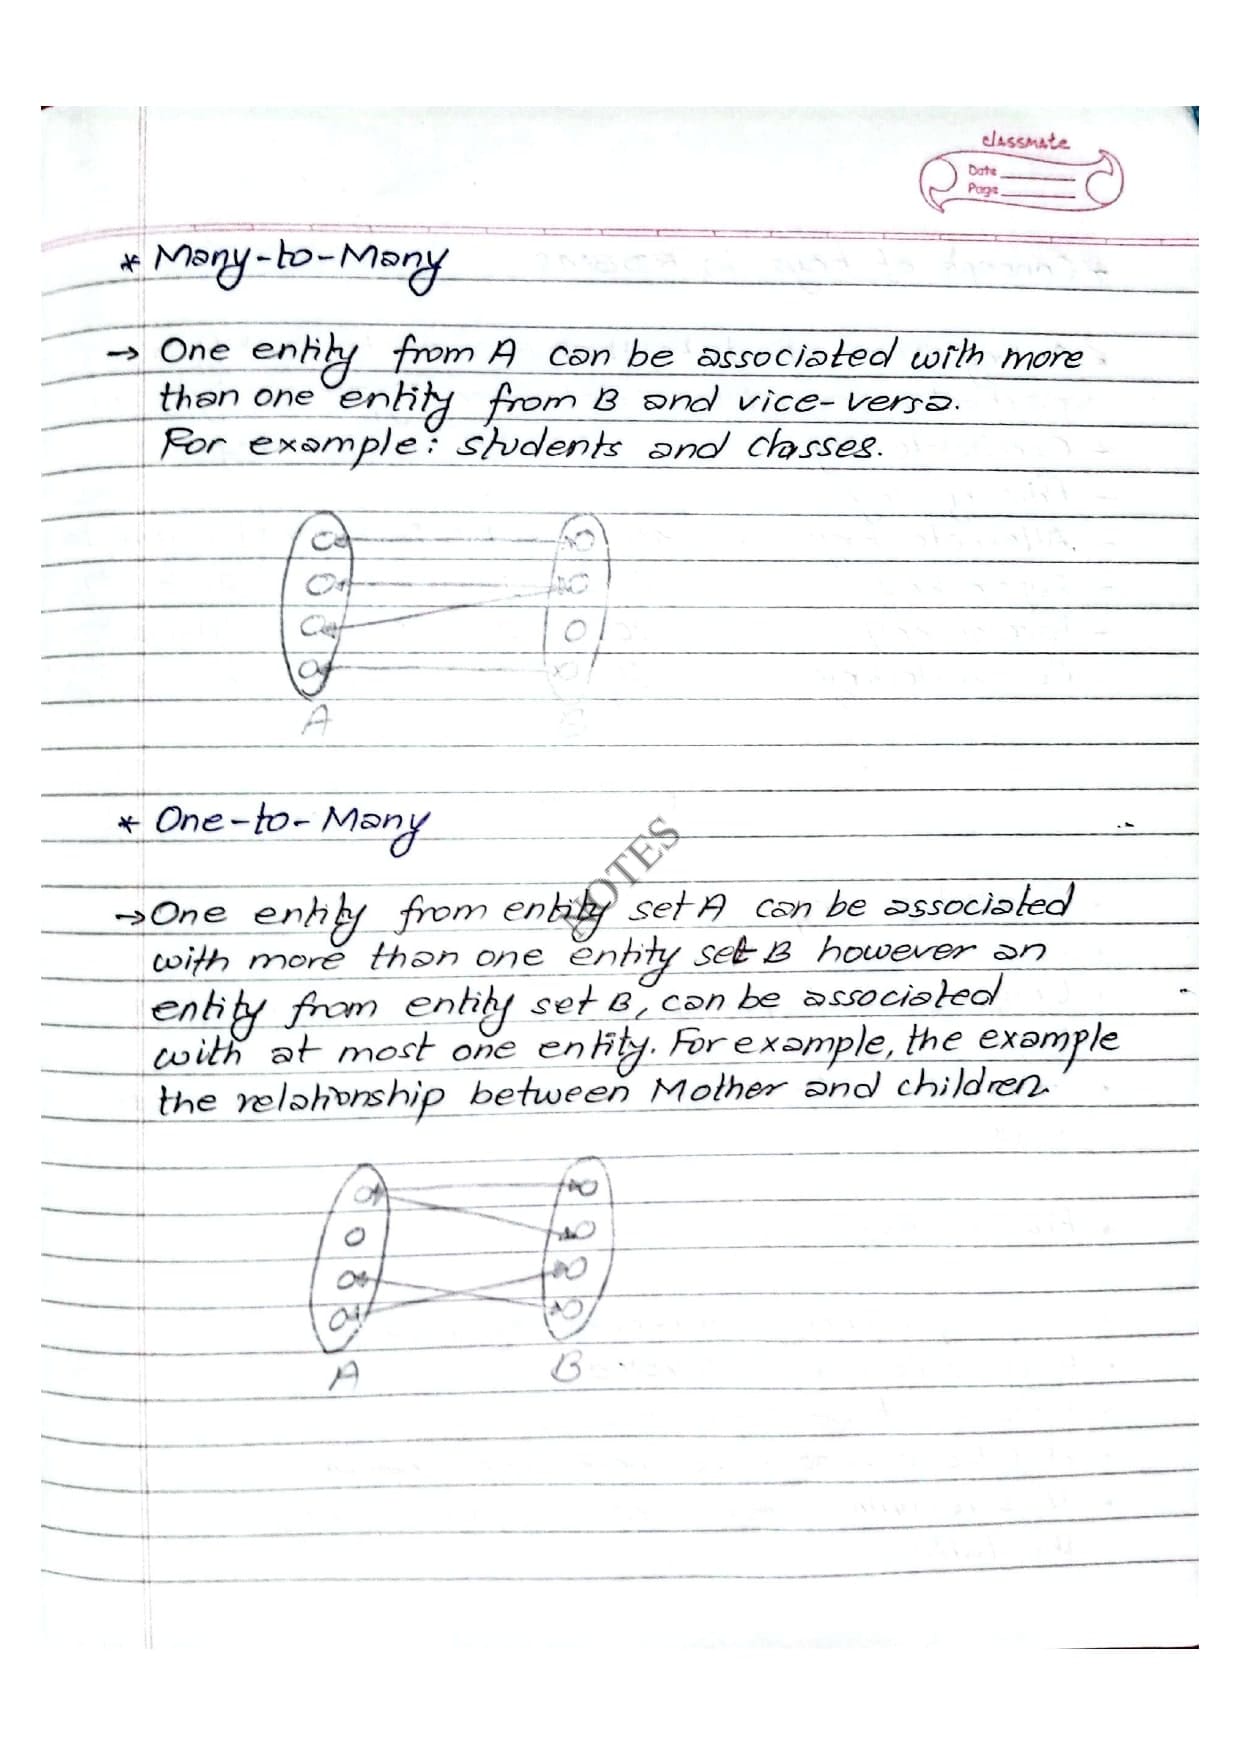 classmate
Date
Page
* Many-to-Many
→ One entity from A can be associated with more
than one entity from B and vice-versa.
For example: students and classes.
A
B
* One-to-Many
NOTES
→ One entity from entity set A can be associated
with more than one entity set B however an
entity from entity set B, can be associated
with at most one entity. For example, the example
the relationship between Mother and children.
A B